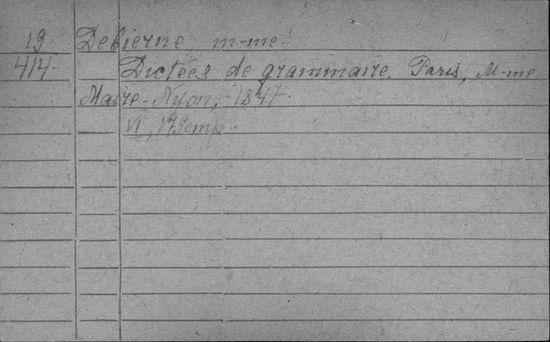 19 Debierne m-me.
414. Dictées de grammaire. Paris, M-me
Maire-Nyon, 1847.
VI, 179 стр.